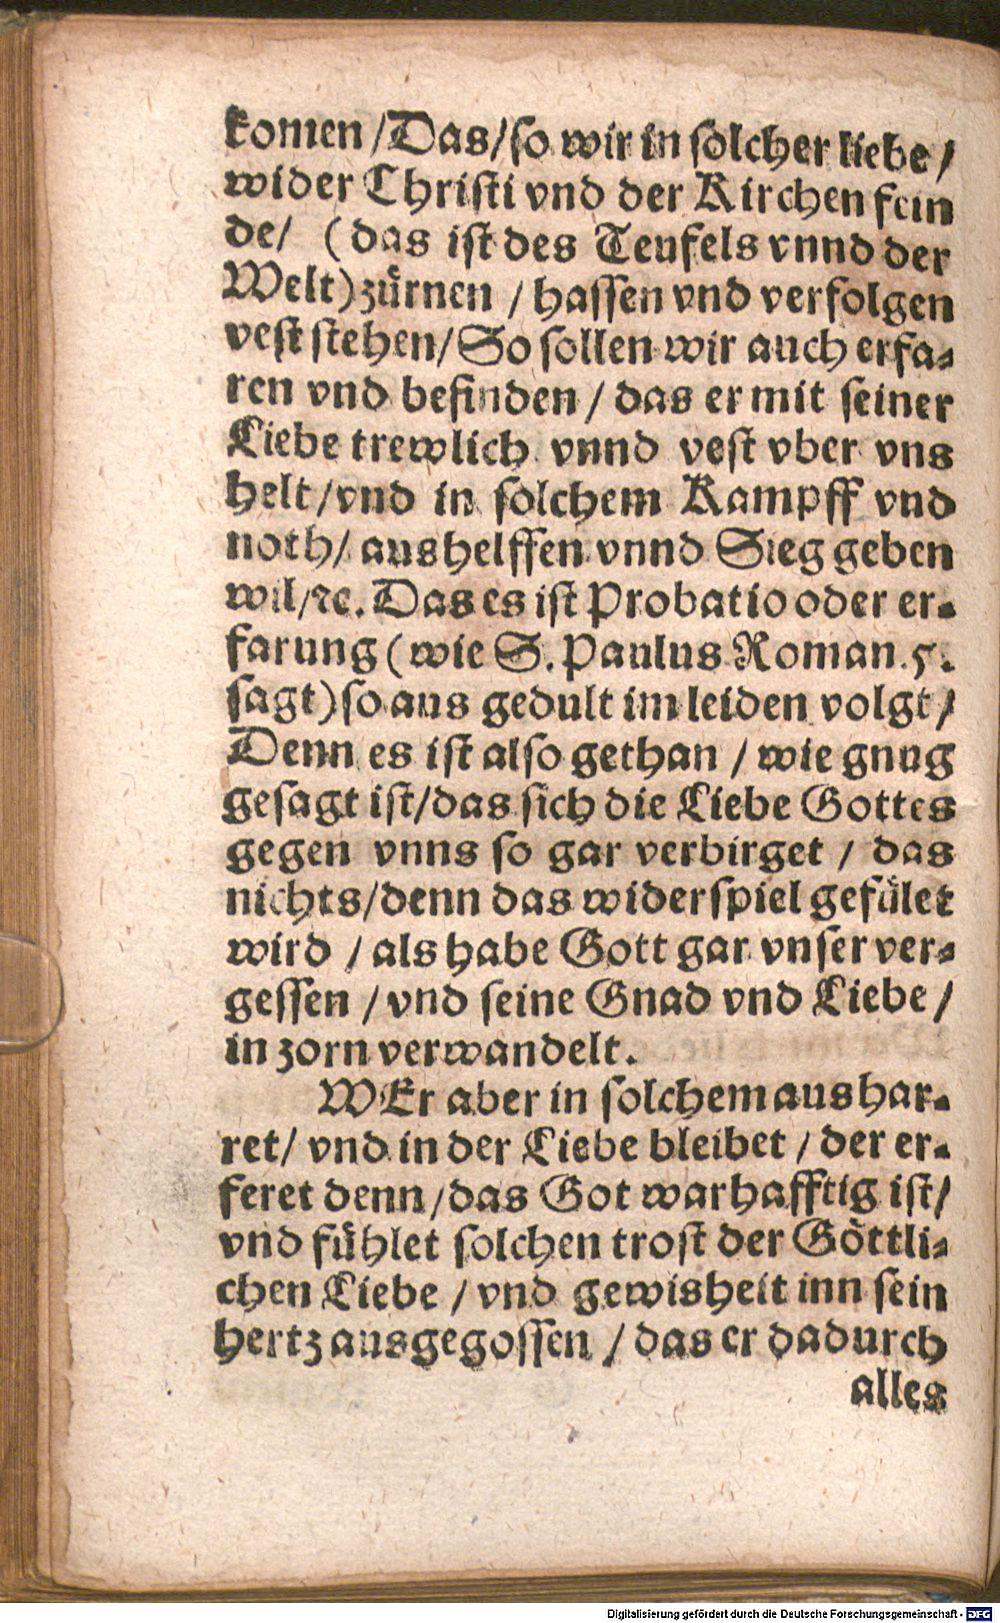 komen /Das/so wir in solcher liebe /
wider Christi vnd der Kirchen fein
de/ (das ist des Teufels vnnd der
Welt) zürnen / hassen vnd verfolgen
vest stehen/ So sollen wir auch erfa-
ren vnd befinden / das er mit seiner
Liebe trewlich vnnd vest vber vns
helt/vnd in solchem Kampff vnd
noth/ aushelffen vnnd Sieg geben
wil/ꝛc. Das es ist Probatio oder er-
farung (wie S. Paulus Roman. 5.
sagt) so aus gedult im leiden volgt /
Denn es ist also gethan / wie gnug
gesagt ist/das sich die Liebe Gottes
gegen vnns so gar verbirget / das
nichts/denn das widerspiel gefület
wird / als habe Gott gar vnser ver-
gessen / vnd seine Gnad vnd Liebe /
in zorn verwandelt.
WEr aber in solchem aushar-
ret/ vnd in der Liebe bleibet / der er-
feret denn /das Got warhafftig ist/
vnd fühlet solchen trost der Göttli-
chen Liebe / vnd gewisheit inn sein
hertz ausgegossen / das er dadurch
alles
Digitalisierung gefördert durch die Deutsche Forschungsgemeinschaft - DFG